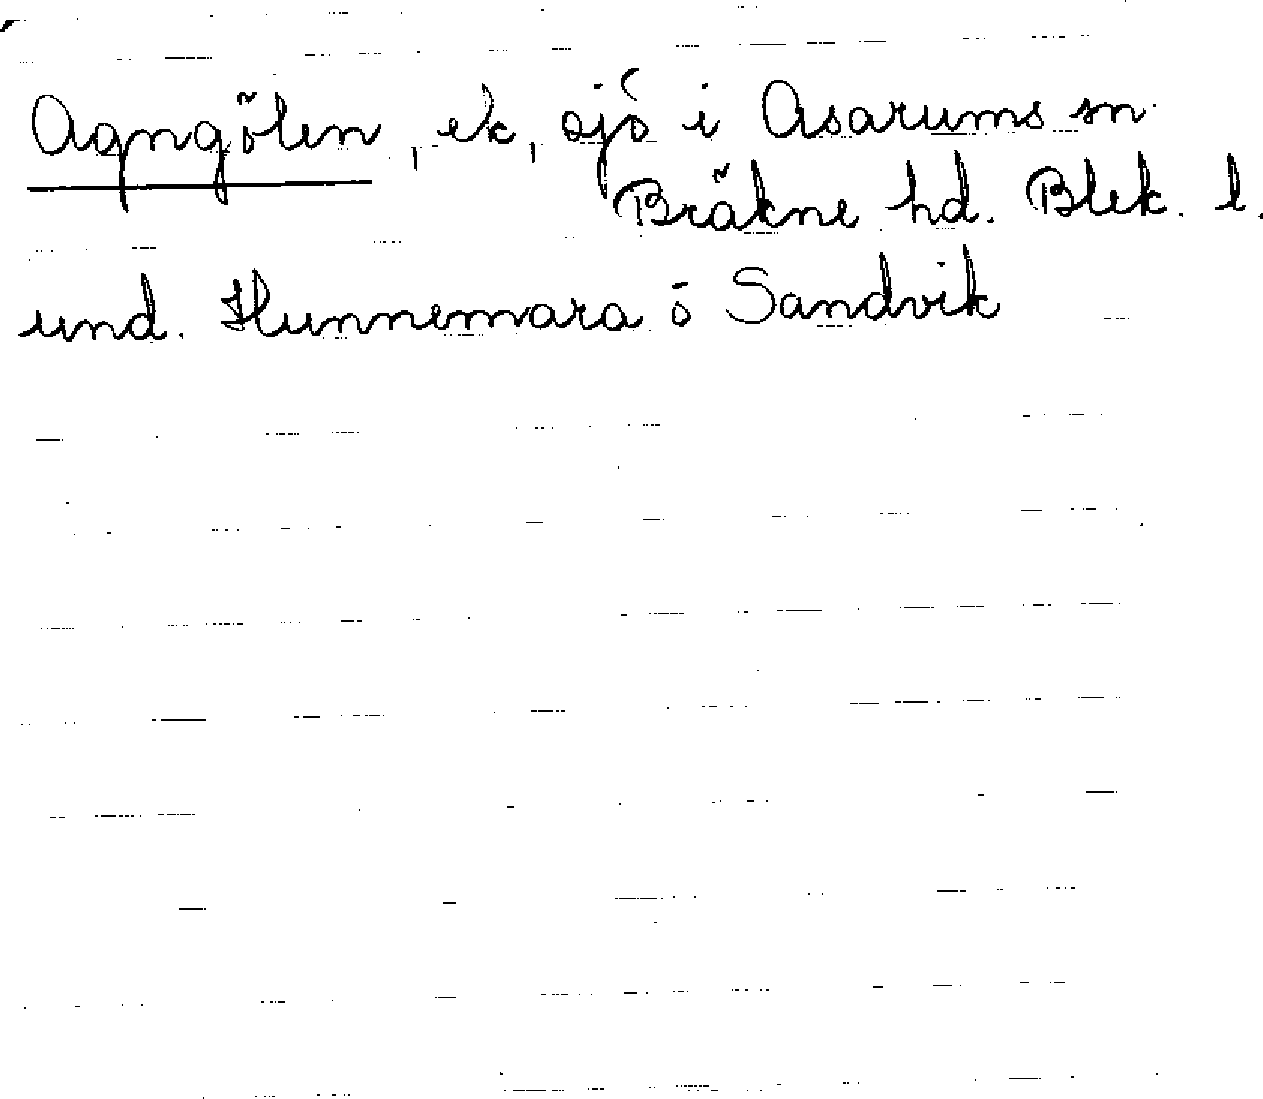 Agngölen, ek, sjö i Asarums sn.
Bräkne hd. Blek. l.
und. Hunnemara o Sandvik